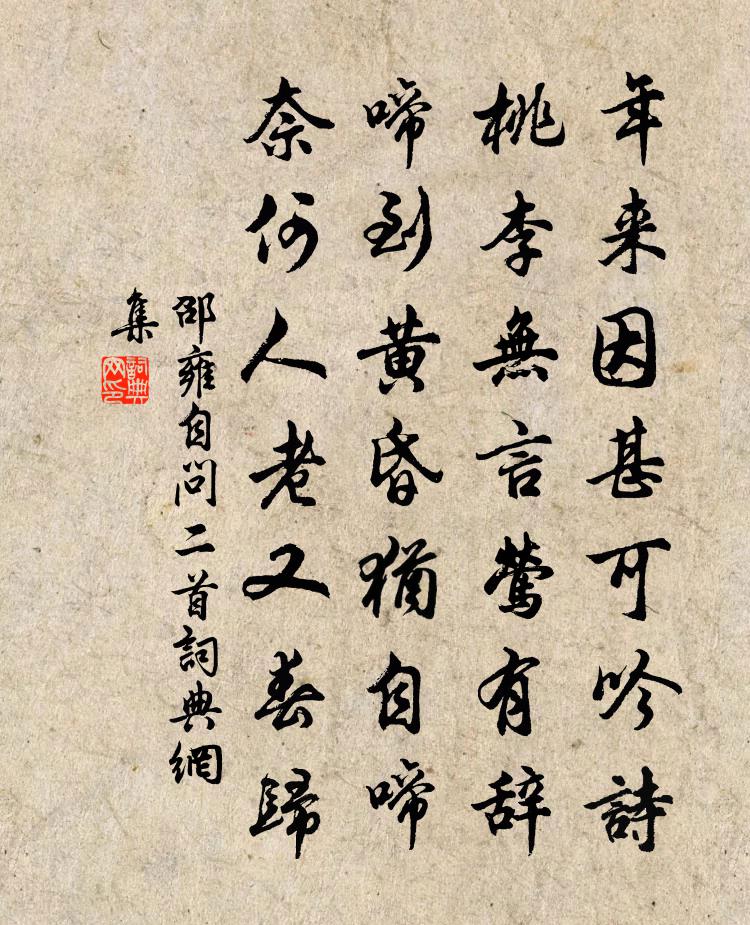 年来因甚可吟詩
桃李無言鶯有辞
啼到黄昏猶自啼
奈何人老又春歸
邵雍自問二首詞典網
集
詞典
网印